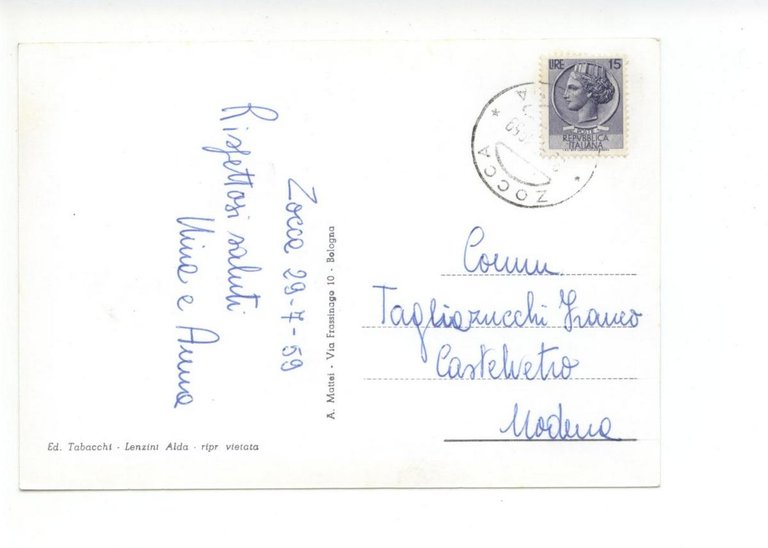 Zocca 29-7-59
Rispettosi saluti
Nina e Anna
A. Mattei - Via Frassinago 10 - Bologna
Ed. Tabacchi - Lenzini Alda - ripr vietata
LIRE 15
POSTE
REPVBBLICA
ITALIANA
ZOCCA
Tagliazucchi Franco
Castelvetro
Modena